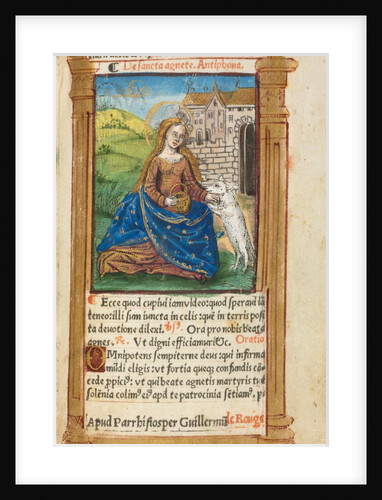 De sancta agnete. Antiphona.
Ecce quod cupivi iam video: quod speravi iã
teneo: illi sum iuncta in celis: quẽ in terris posi
ta devotione dilexi. Ora pro nobis beata
agnes. Ut digni efficiamur Oratio
OMnipotens sempiterne deus: qui infirma
mũdi eligis: ut fortia queq; confundas cõ
cede ppici9: ut qui beate agnetis martyris tue
solẽnia colim9 ei9 apd te patrocinia sẽtiam9. p
Apud Parrhisios per Guillermũ le Rouge